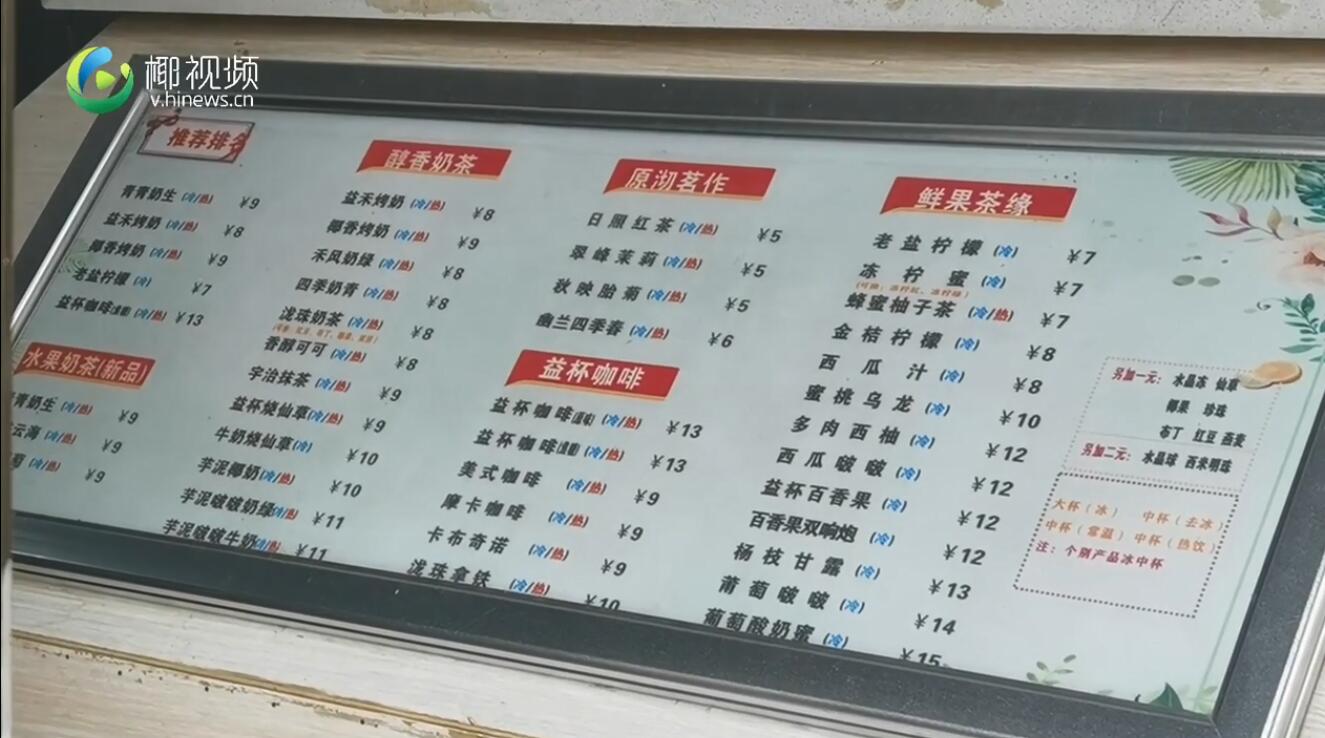 椰视频
v.hinews.cn
推荐排名
青青奶生(冷/热) ¥9
益禾烤奶(冷/热) ¥8
椰香烤奶(冷/热) ¥9
老盐柠檬(冷) ¥7
益杯咖啡 (冷/热) ¥13
水果奶茶(新品)
青奶生(冷/热) ¥9
云海(冷/热) ¥9
(冷/热) ¥9
醇香奶茶
益禾烤奶(冷/热) ¥8
椰香烤奶(冷/热) ¥9
禾风奶绿(冷/热) ¥8
四季奶青(冷/热) ¥8
泷珠奶茶(冷/热) ¥8
香醇可可(冷/热) ¥8
宇治抹茶(冷/热) ¥9
益杯烧仙草(冷/热) ¥9
牛奶烧仙草(冷) ¥10
芋泥椰奶(冷/热) ¥10
芋泥啵啵奶绿(冷/热) ¥11
芋泥啵啵牛奶(冷/热) ¥11
原沏茗作
日照红茶(冷/热) ¥5
翠峰茉莉(冷/热) ¥5
秋映胎菊(冷/热) ¥5
幽兰四季春(冷/热) ¥6
益杯咖啡
益杯咖啡 (冷/热) ¥13
益杯咖啡 (冷/热) ¥13
美式咖啡(冷/热) ¥9
摩卡咖啡(冷/热) ¥9
卡布奇诺(冷/热) ¥9
泷珠拿铁(冷/热) ¥10
鲜果茶缘
老盐柠檬(冷) ¥7
冻柠蜜(冷) ¥7
蜂蜜柚子茶(冷/热) ¥7
金桔柠檬(冷) ¥8
西瓜汁(冷) ¥8
蜜桃乌龙(冷) ¥10
多肉西柚(冷) ¥12
西瓜啵啵(冷) ¥12
益杯百香果(冷) ¥12
百香果双响炮(冷) ¥12
杨枝甘露(冷) ¥13
葡萄啵啵(冷) ¥14
葡萄酸奶蜜(冷) ¥15
另加一元: 水晶冻 仙草
椰果 珍珠
布丁 红豆 燕麦
另加二元: 水晶球 西米明珠
大杯(冰) 中杯(去冰)
中杯(常温) 中杯(热饮)
注: 个别产品冰中杯